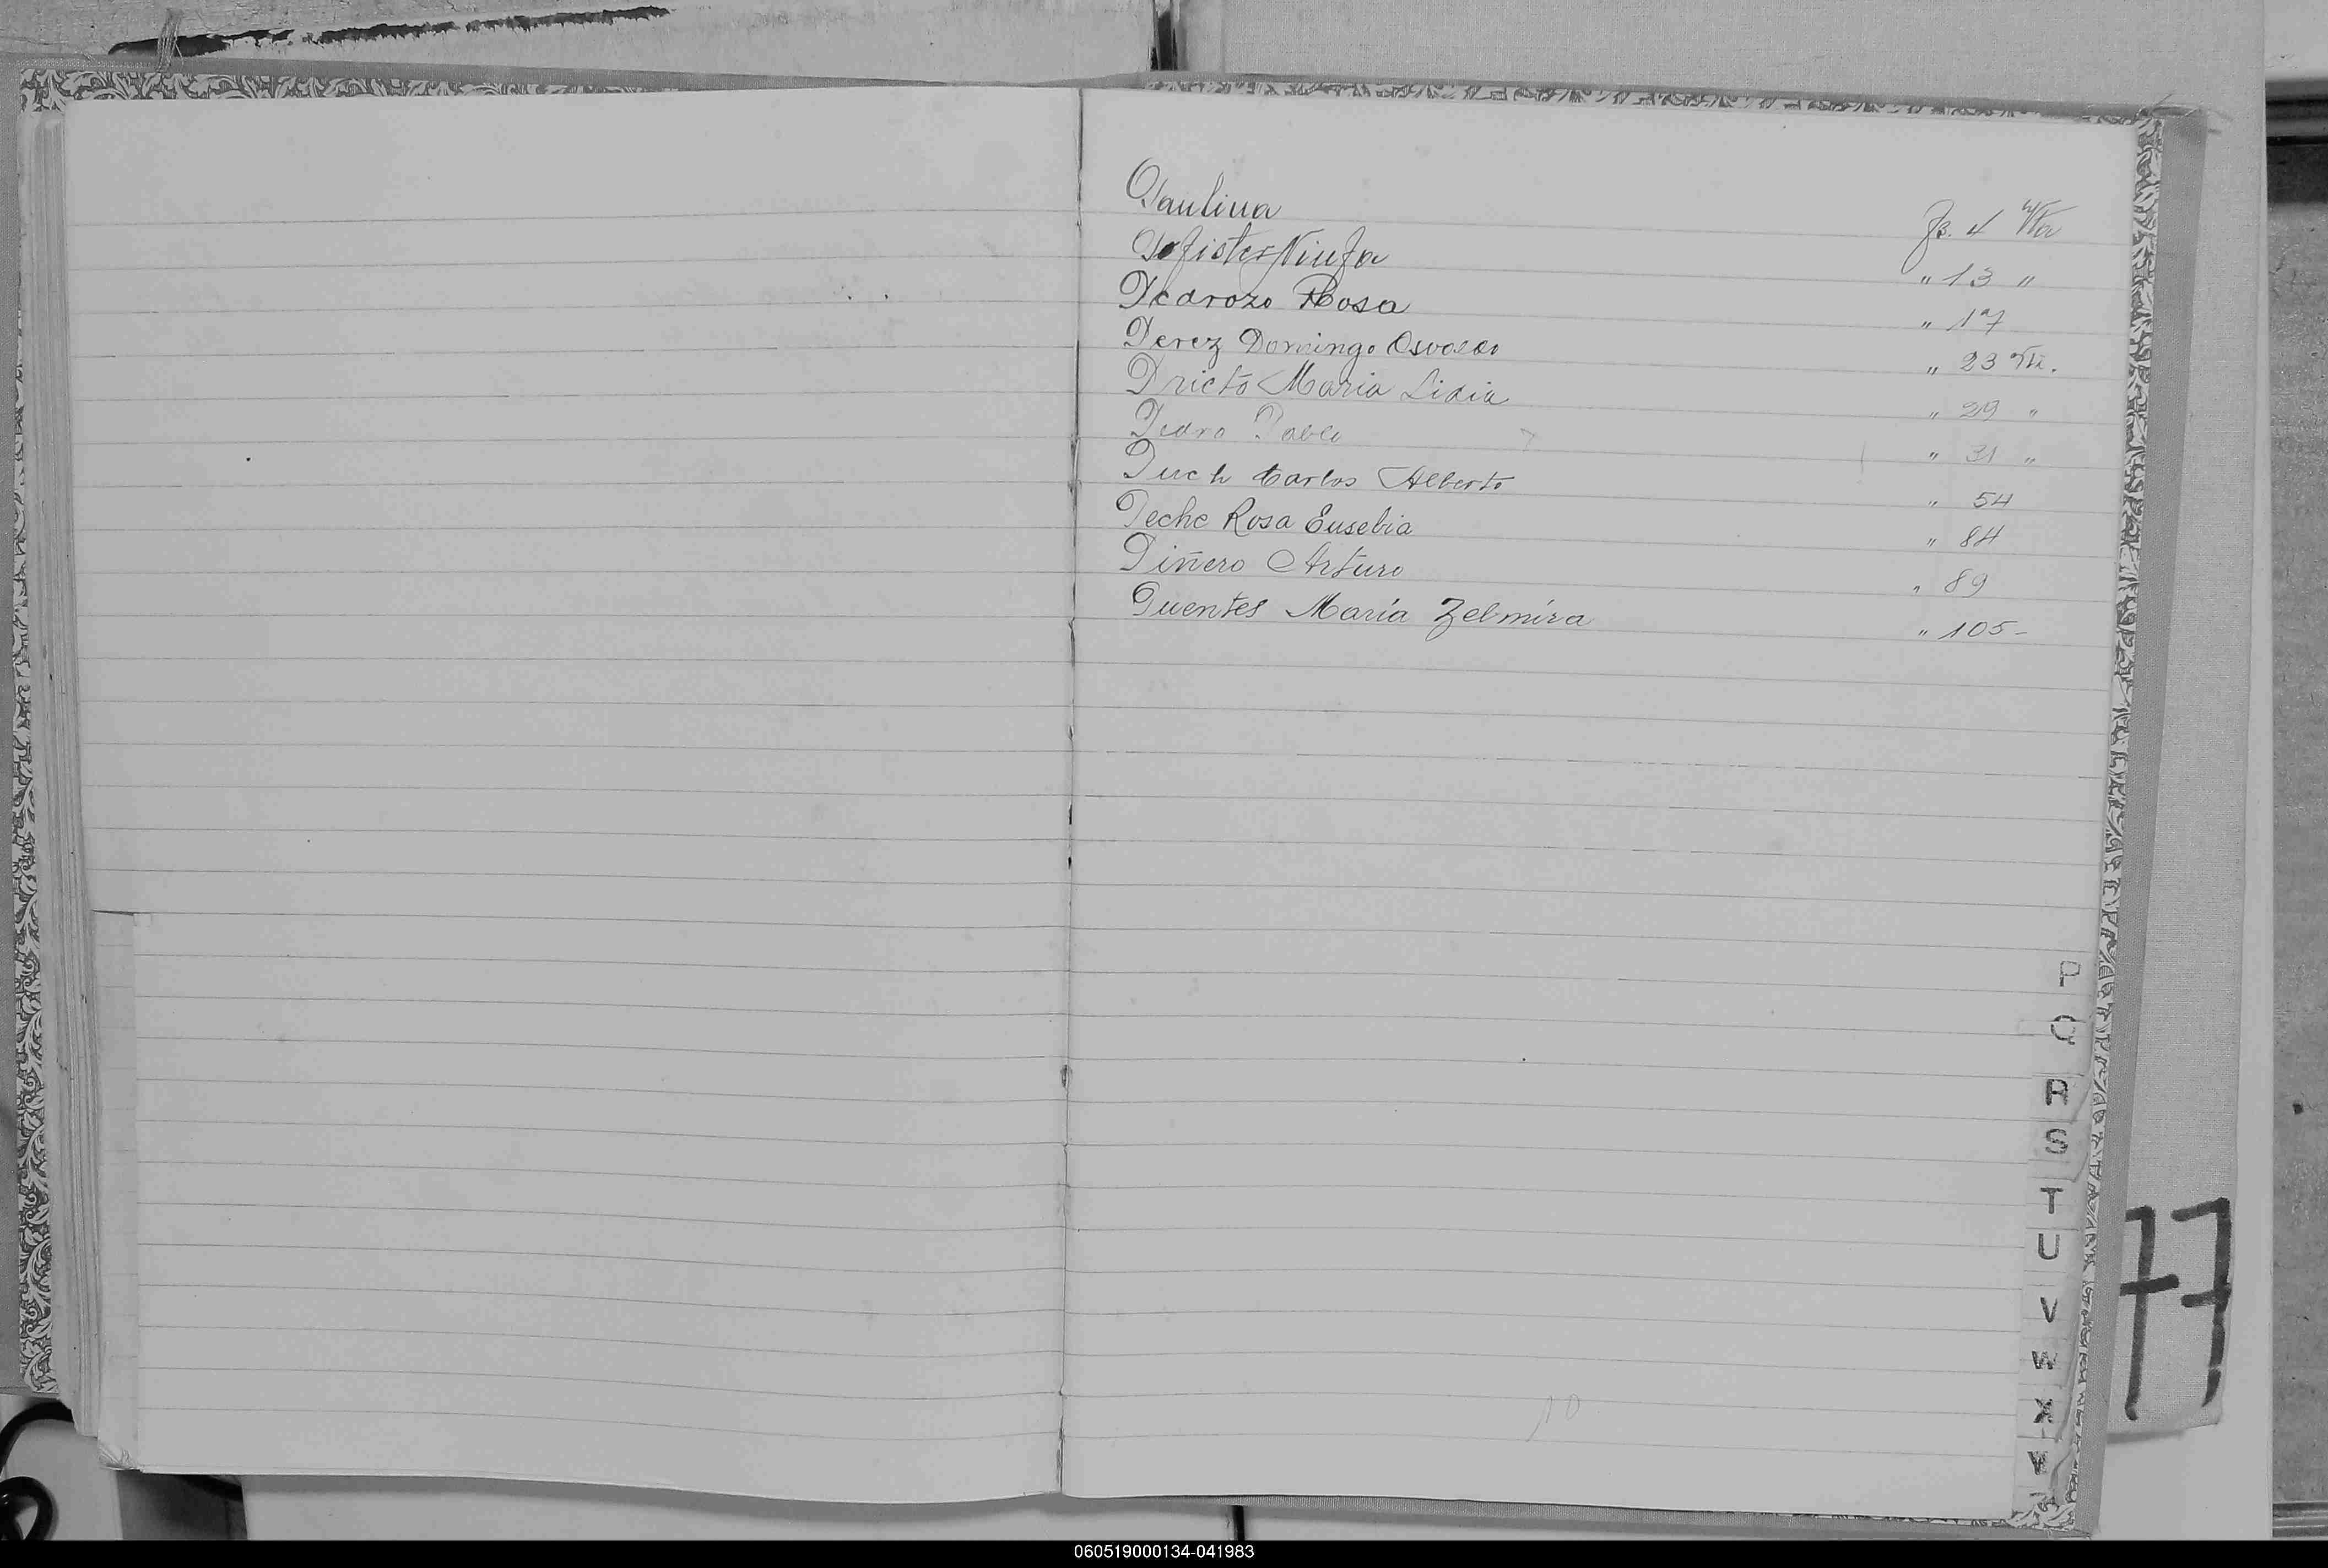 Paulina fs. 4 Vta
Pfister Ninfa " 13 "
Pedrozo Rosa " 17
Perez Domingo Osvaldo " 23 Vta.
Prieto Maria Lidia " 29 "
Pedro Pablo " 31 "
Puch Carlos Alberto " 54
Peche Rosa Eusebia " 84
Piñero Arturo " 89
Puentes María Zelmira " 105-
P
Q
R
S
T
U
V
W
X
Y
77
10
060519000134-041983